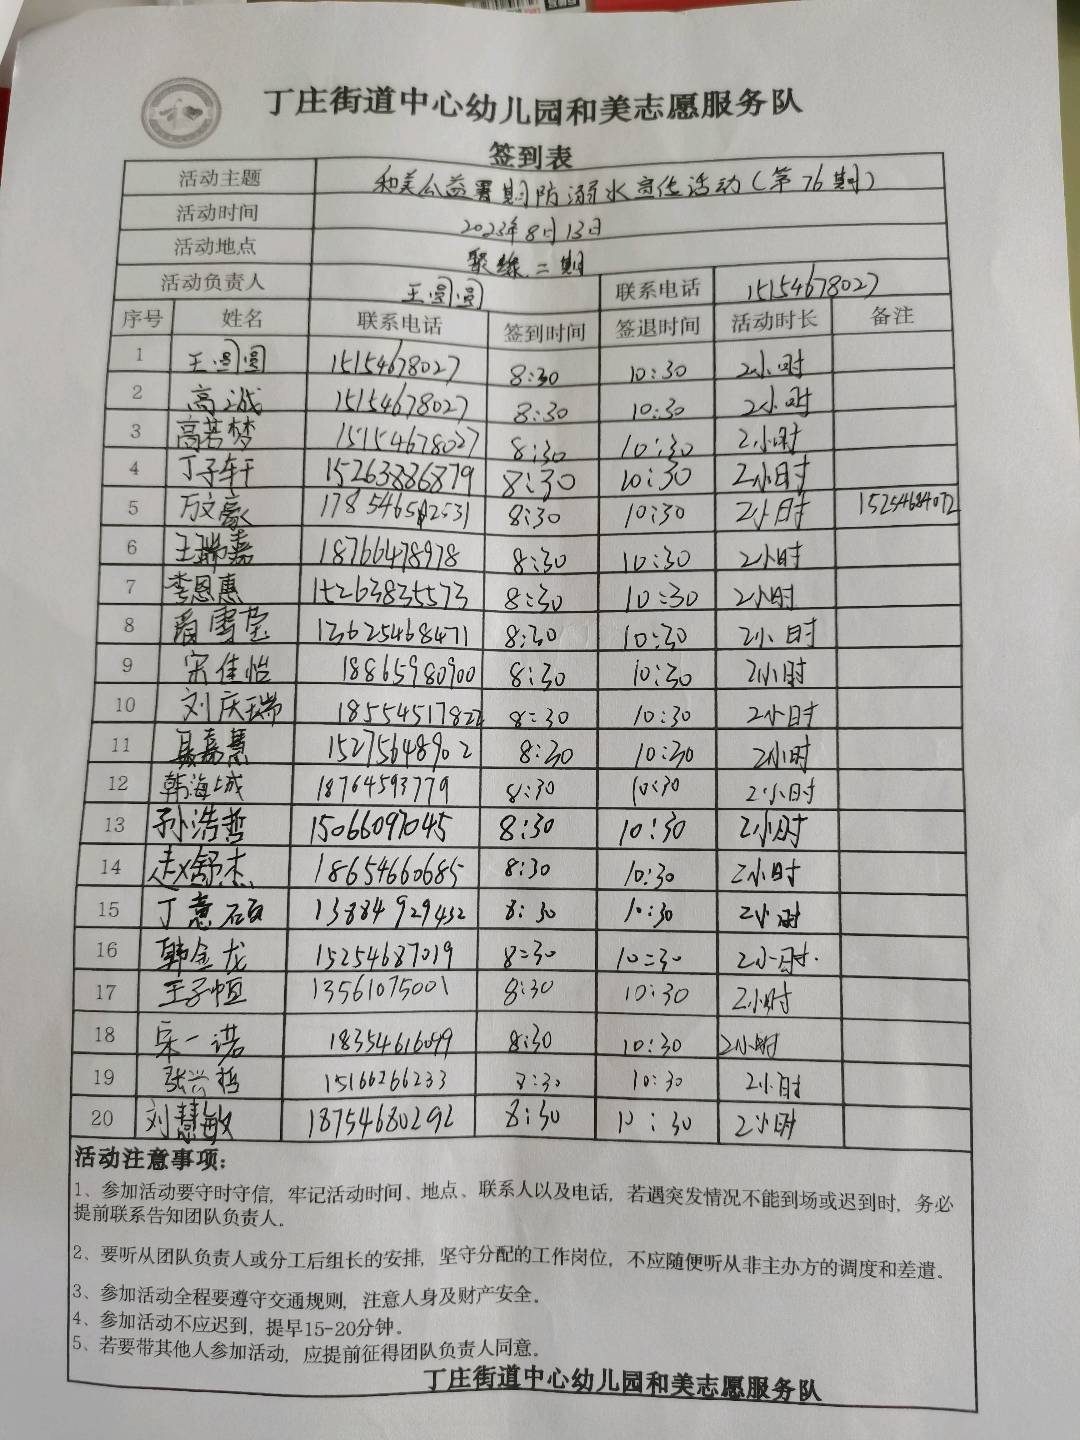 丁庄街道中心幼儿园和美志愿服务队
签到表
活动主题 和美公益暑期防溺水宣传活动(第76期)
活动时间 2023年8月13日
活动地点 聚缘二期
活动负责人 王圆圆 联系电话 15154678027
序号 姓名 联系电话 签到时间 签退时间 活动时长 备注
1 王圆圆 15154678027 8:30 10:30 2小时
2 高诚 15154678027 8:30 10:30 2小时
3 高若梦 15154678027 8:30 10:30 2小时
4 丁子轩 15263886879 8:30 10:30 2小时
5 万文豪 8:30 10:30 2小时 15254684072
6 王瑞嘉 18766478978 8:30 10:30 2小时
7 李恩惠 15263835573 8:30 10:30 2小时
8 雪莹 13625468471 8:30 10:30 2小时
9 宋佳怡 18865980900 8:30 10:30 2小时
10 刘庆瑞 18554517822 8:30 10:30 2小时
11 嘉慧 15275648902 8:30 10:30 2小时
12 韩海城 18764593779 8:30 10:30 2小时
13 孙浩哲 15066097045 8:30 10:30 2小时
14 赵舒杰 18654660685 8:30 10:30 2小时
15 丁意硕 13884929432 8:30 10:30 2小时
16 韩金龙 15254687019 8:30 10:30 2小时.
17 王子恒 13561075001 8:30 10:30 2小时
18 宋一诺 18354616099 8:30 10:30 2小时
19 张兴哲 15166266233 8:30 10:30 2小时
20 刘慧敏 18754680292 8:30 10:30 2小时
活动注意事项:
1、参加活动要守时守信,牢记活动时间、地点、联系人以及电话,若遇突发情况不能到场或迟到时,务必
提前联系告知团队负责人。
2、要听从团队负责人或分工后组长的安排,坚守分配的工作岗位,不应随便听从非主办方的调度和差遣。
3、参加活动全程要遵守交通规则,注意人身及财产安全。
4、参加活动不应迟到,提早15-20分钟。
5、若要带其他人参加活动,应提前征得团队负责人同意。
丁庄街道中心幼儿园和美志愿服务队